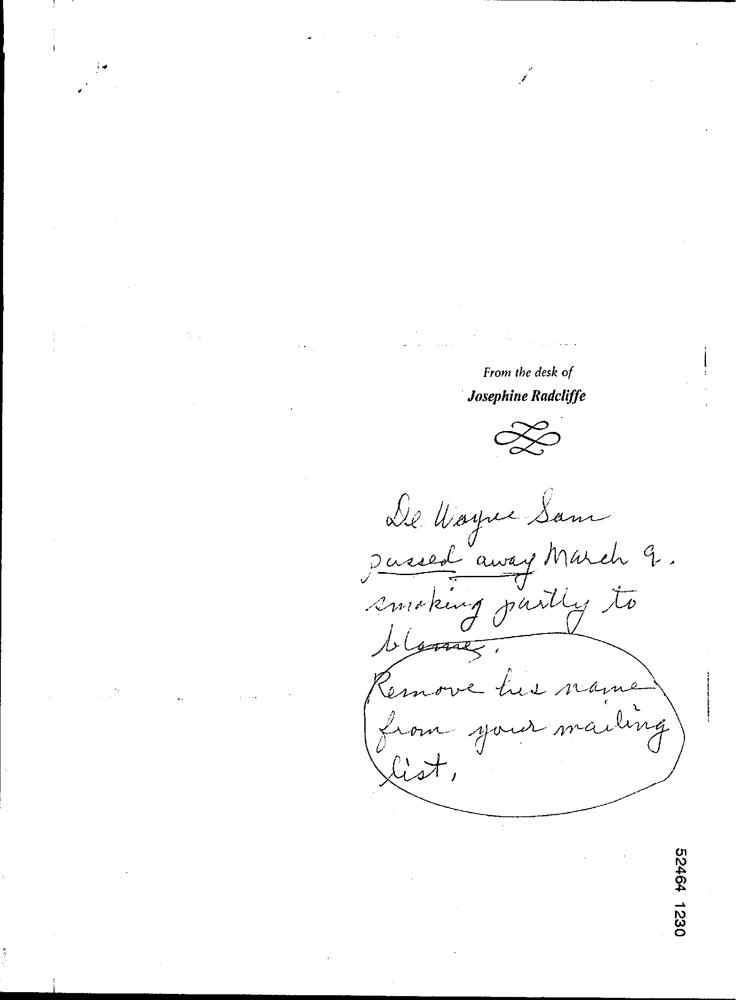 From the desk of
Josephine Radcliffe
De Wayne Sam
passed away March 9.
smoking partly to
blame.
Remove his name
from your mailing
list,
52464 1230